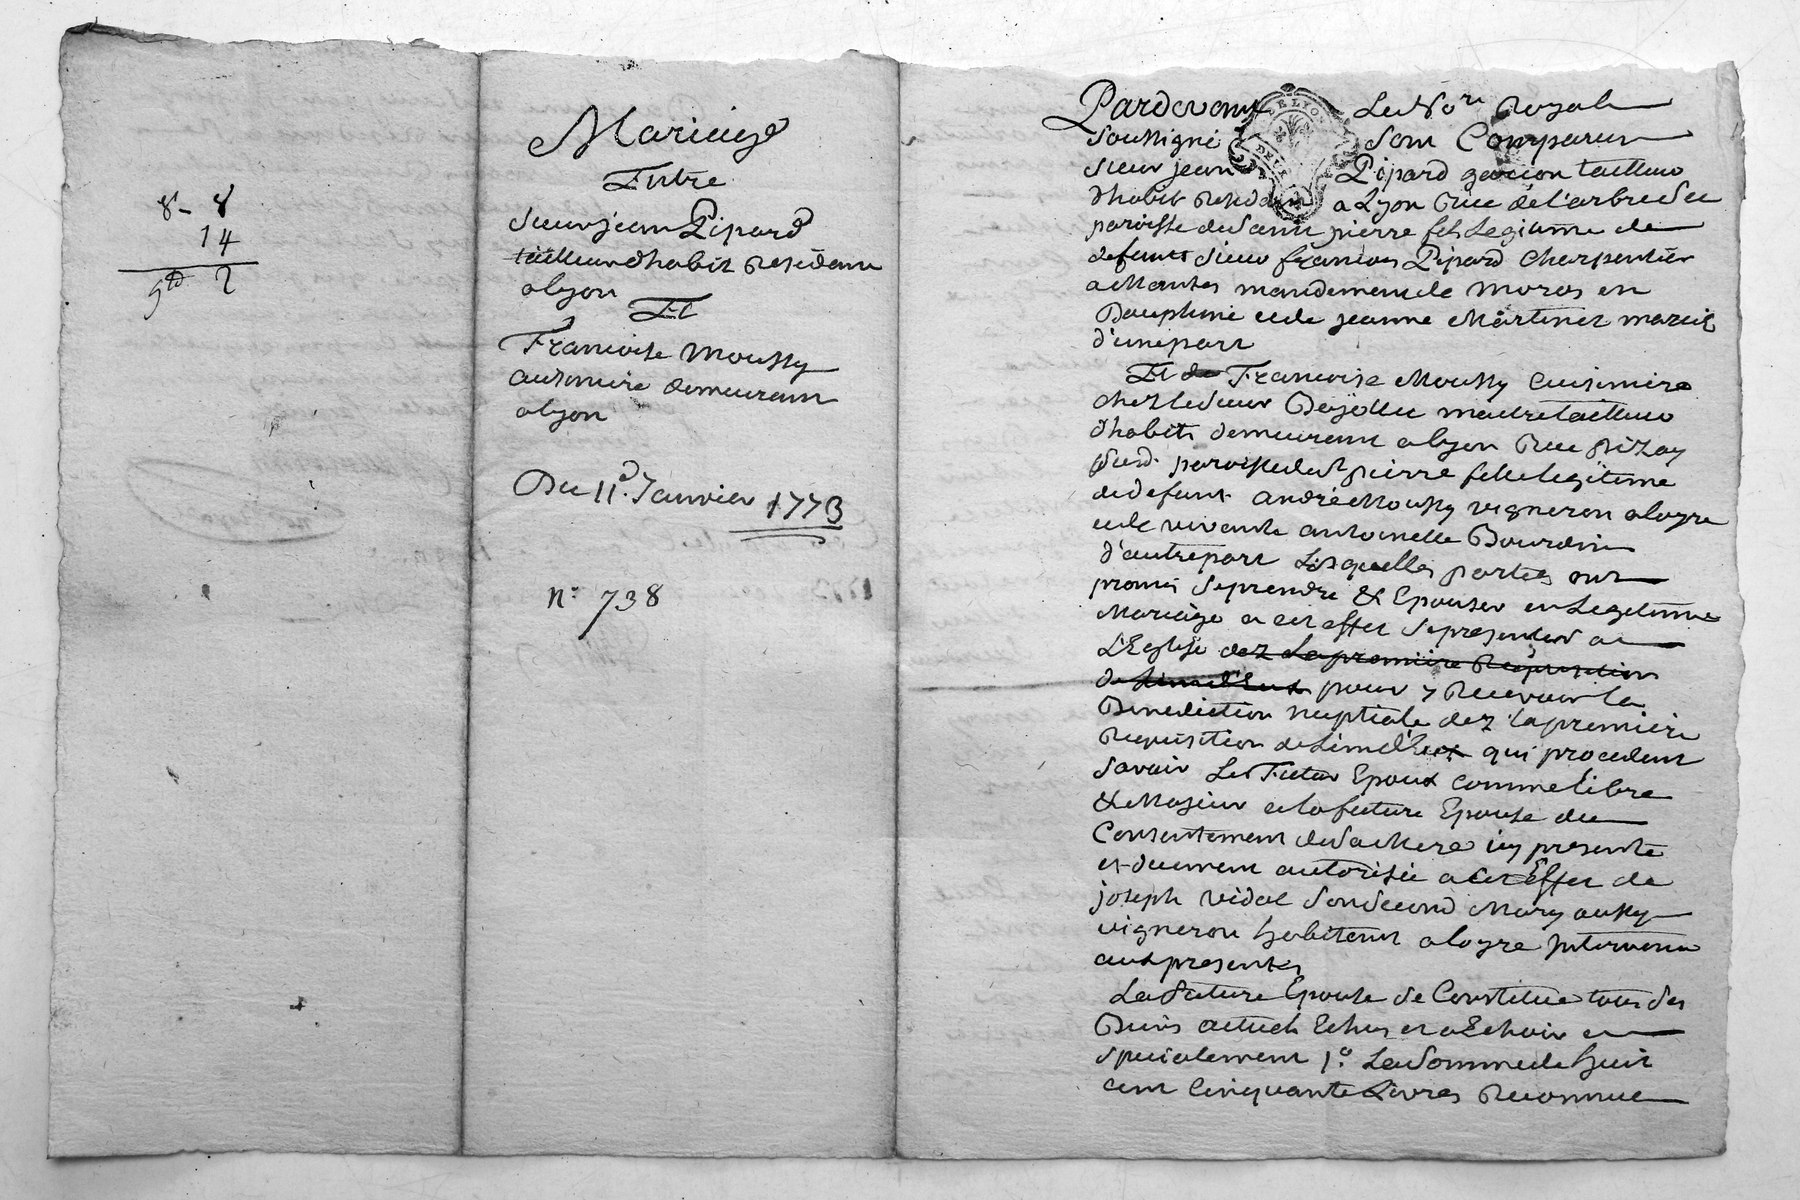 8 - 8
14
9 d 2
Mariage
Entre
Sieur jean Pipard
tailleur dhabit Residant
a lyon
Et
Francoise Moussy
cuisiniere demeurant
a lyon
Du 11e. Janvier 1773
n° 738
Pardevant Le Nore Royal
soussigné sont Comparus
sieur jean Pipard garcon tailleur
dhabit Residant a Lyon Rue de l'arbre sec
paroisse de saint pierre fils legitime de
defunt sieur francois Pipard Charpentier
a Mantes mandement de moras en
Dauphiné et de jeanne Martinet mariés
d'une part
Et de Francoise Moussy cuisiniere
chez le sieur maitre tailleur
d'habits demeurant a lyon Rue pizay
susd. paroisse de st pierre fille legitime
de defunt andré Moussy vigneron a loyre
et de vivante antoinette Bourdin
d'autre part Lesquelles parties ont
promis se prendre & Epouser en Legitime
Mariage a cet effet se presenter a
L'Eglise dez La premiere Requisition
de Lun d'Eux pour y Recevoir la
Benediction nuptiale dez la premiere
Requisition de Lun d'Eux qui procedent
savoir Le Futur Epoux comme libre
& Majeur et la future Epouse du
Consentement de sa Mere icy presente
et duement autorisée a cet Effet de
joseph vidal son second Mary aussy
vigneron habitant a loyre Intervenu
aux presentes
La future Epouse se Constitue tous ses
Biens actuels Echus et a Echoir et
specialement 1°. La somme de huit
cent Cinquante Livres Reconnue
DE LYON
DEUX